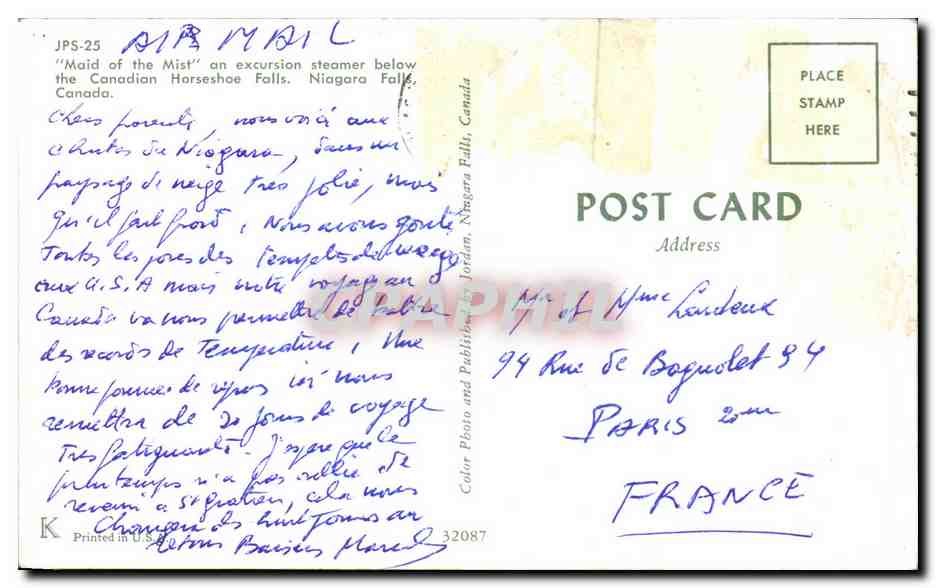 JPS-25 AIR MAIL
"Maid of the Mist" an excursion steamer below
the Canadian Horseshoe Falls. Niagara Falls,
Canada.
Chers parents, nous voici aux
chutes du Niagara, dans un
paysage de neige très jolie, mais
qu'il fait froid, Nous avons goûté
Toutes les joies des tempêtes de neige
aux U.S.A mais notre voyage au
Canada va nous permettre de battre
des records de Température, Une
bonne journée de repos ici nous
remettra de 20 jours de voyage
Tres fatiguants. J'espère que le
printemps n'a pas oublié de
revenir à St gratien, cela nous
Changera des
retour Baisers
K
Printed in U.S.A.
32087
Color Photo and Published by Jordan, Niagara Falls, Canada
PLACE
STAMP
HERE
POST CARD
Address
Mr et Mme
94 Rue de Bagnolet 94
PARIS 20em
FRANCE
CPAPHIL